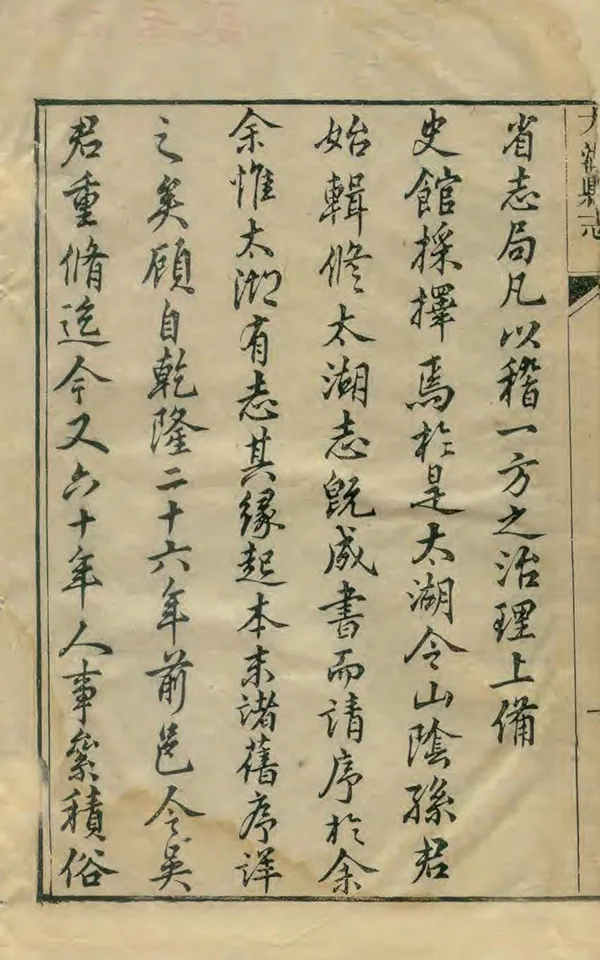 太湖縣志
省志局凡以稽一方之治理上備
史館採擇焉於是太湖令山陰孫君
始輯修太湖志既成書而請序於余
余惟太湖有志其緣起本末諸舊序詳
之矣顧自乾隆二十六年前邑令吳
君重脩迄今又六十年人事絫積俗